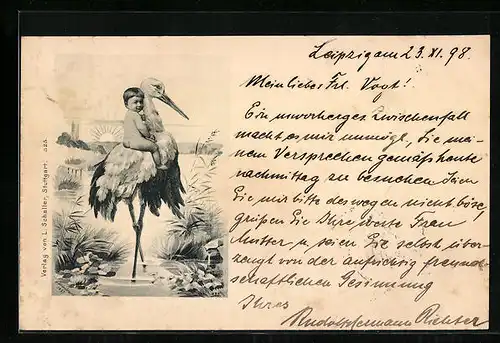 Leipzig am 23. XI. 98.
Mein liebes Frl. Vogt!
Ein unvorherges. Zwischenfall
macht es mir unmögl., Sie mei-
nem Versprechen gemäß heute
nachmittag zu besuchen. Seien
Sie mir bitte deswegen nicht böse,
grüßen Sie Ihre werte Frau
Mutter u. seien Sie selbst über-
zeugt von der aufrichtig freund-
schaftlichen Gesinnung
Ihres
Rudolf Hermann Richter
Verlag von L. Schaller, Stuttgart.